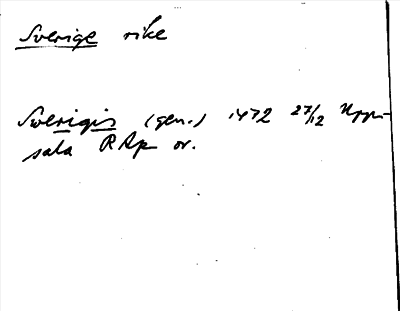 Sverige rike
Swerigis (gen.) 1472 27/12 Upp-
sala RAp or.